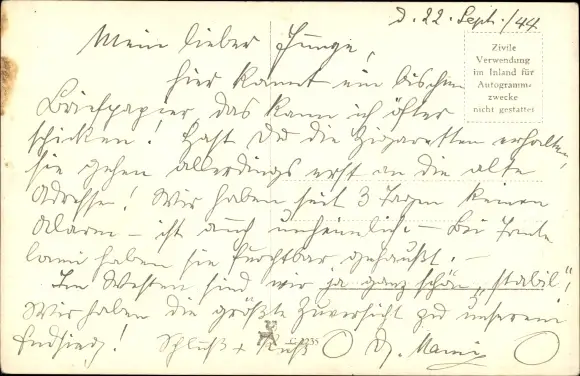 D. 22. Sept./44
Mein lieber Junge,
Zivile
Verwendung
im Inland für
Autogramm-
zwecke
nicht gestattet
hier kommt ein bischen
Briefpapier das kann ich öfter
schicken! Hast Du die Zigaretten erhalten,
sie gehen allerdings erst an die alte
Adresse! Wir haben seit 3 Tagen keinen
Alarm – ist auch unheimlich. – Bei Tante
haben sie furchtbar gehaußt. –
Im Westen sind wir ja ganz schön „stabil"!
Wir haben die größte Zuversicht zu unserem
Endsieg! Schluß + Kuß D. Mami